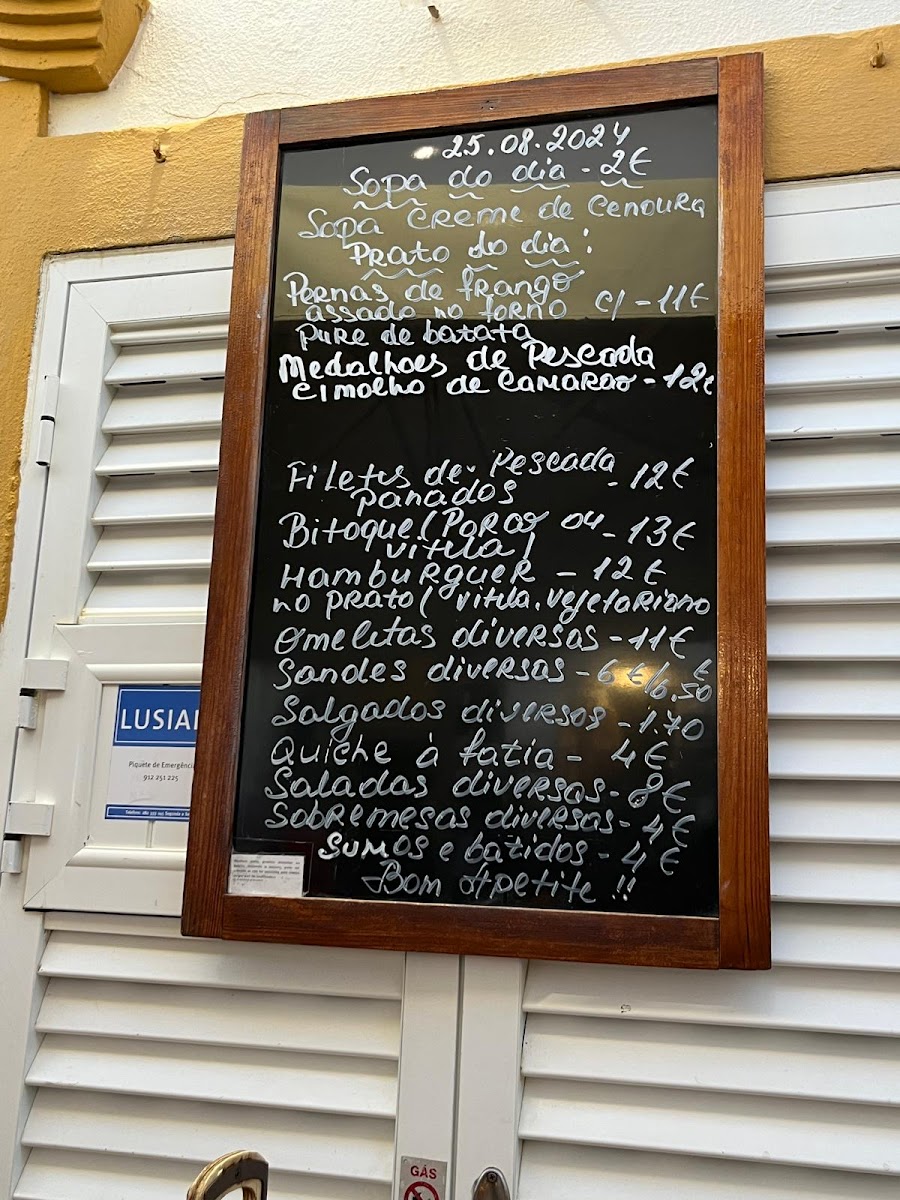 25.08.2024
Sopa do dia - 2€
Sopa Creme de Cenoura
Prato do dia:
Pernas de frango
assado no forno c/ - 11€
pure de batata
Medalhoes de Pescada
c/molho de Camarao - 12€
Filetes de Pescada - 12€
panados
Bitoque (Porco ou - 13€
vitela)
Hamburguer - 12€
no prato ( vitela, vegetariano
Omeletas diversas - 11€
Sandes diversas - 6€/6.50€
Salgados diversos - 1.70
Quiche à fatia - 4€
Saladas diversas - 8€
Sobremesas diversas - 4€
Sumos e batidos - 4€
Bom Apetite !!
LUSIA
Piquete de Emergência
912 251 225
GÁS